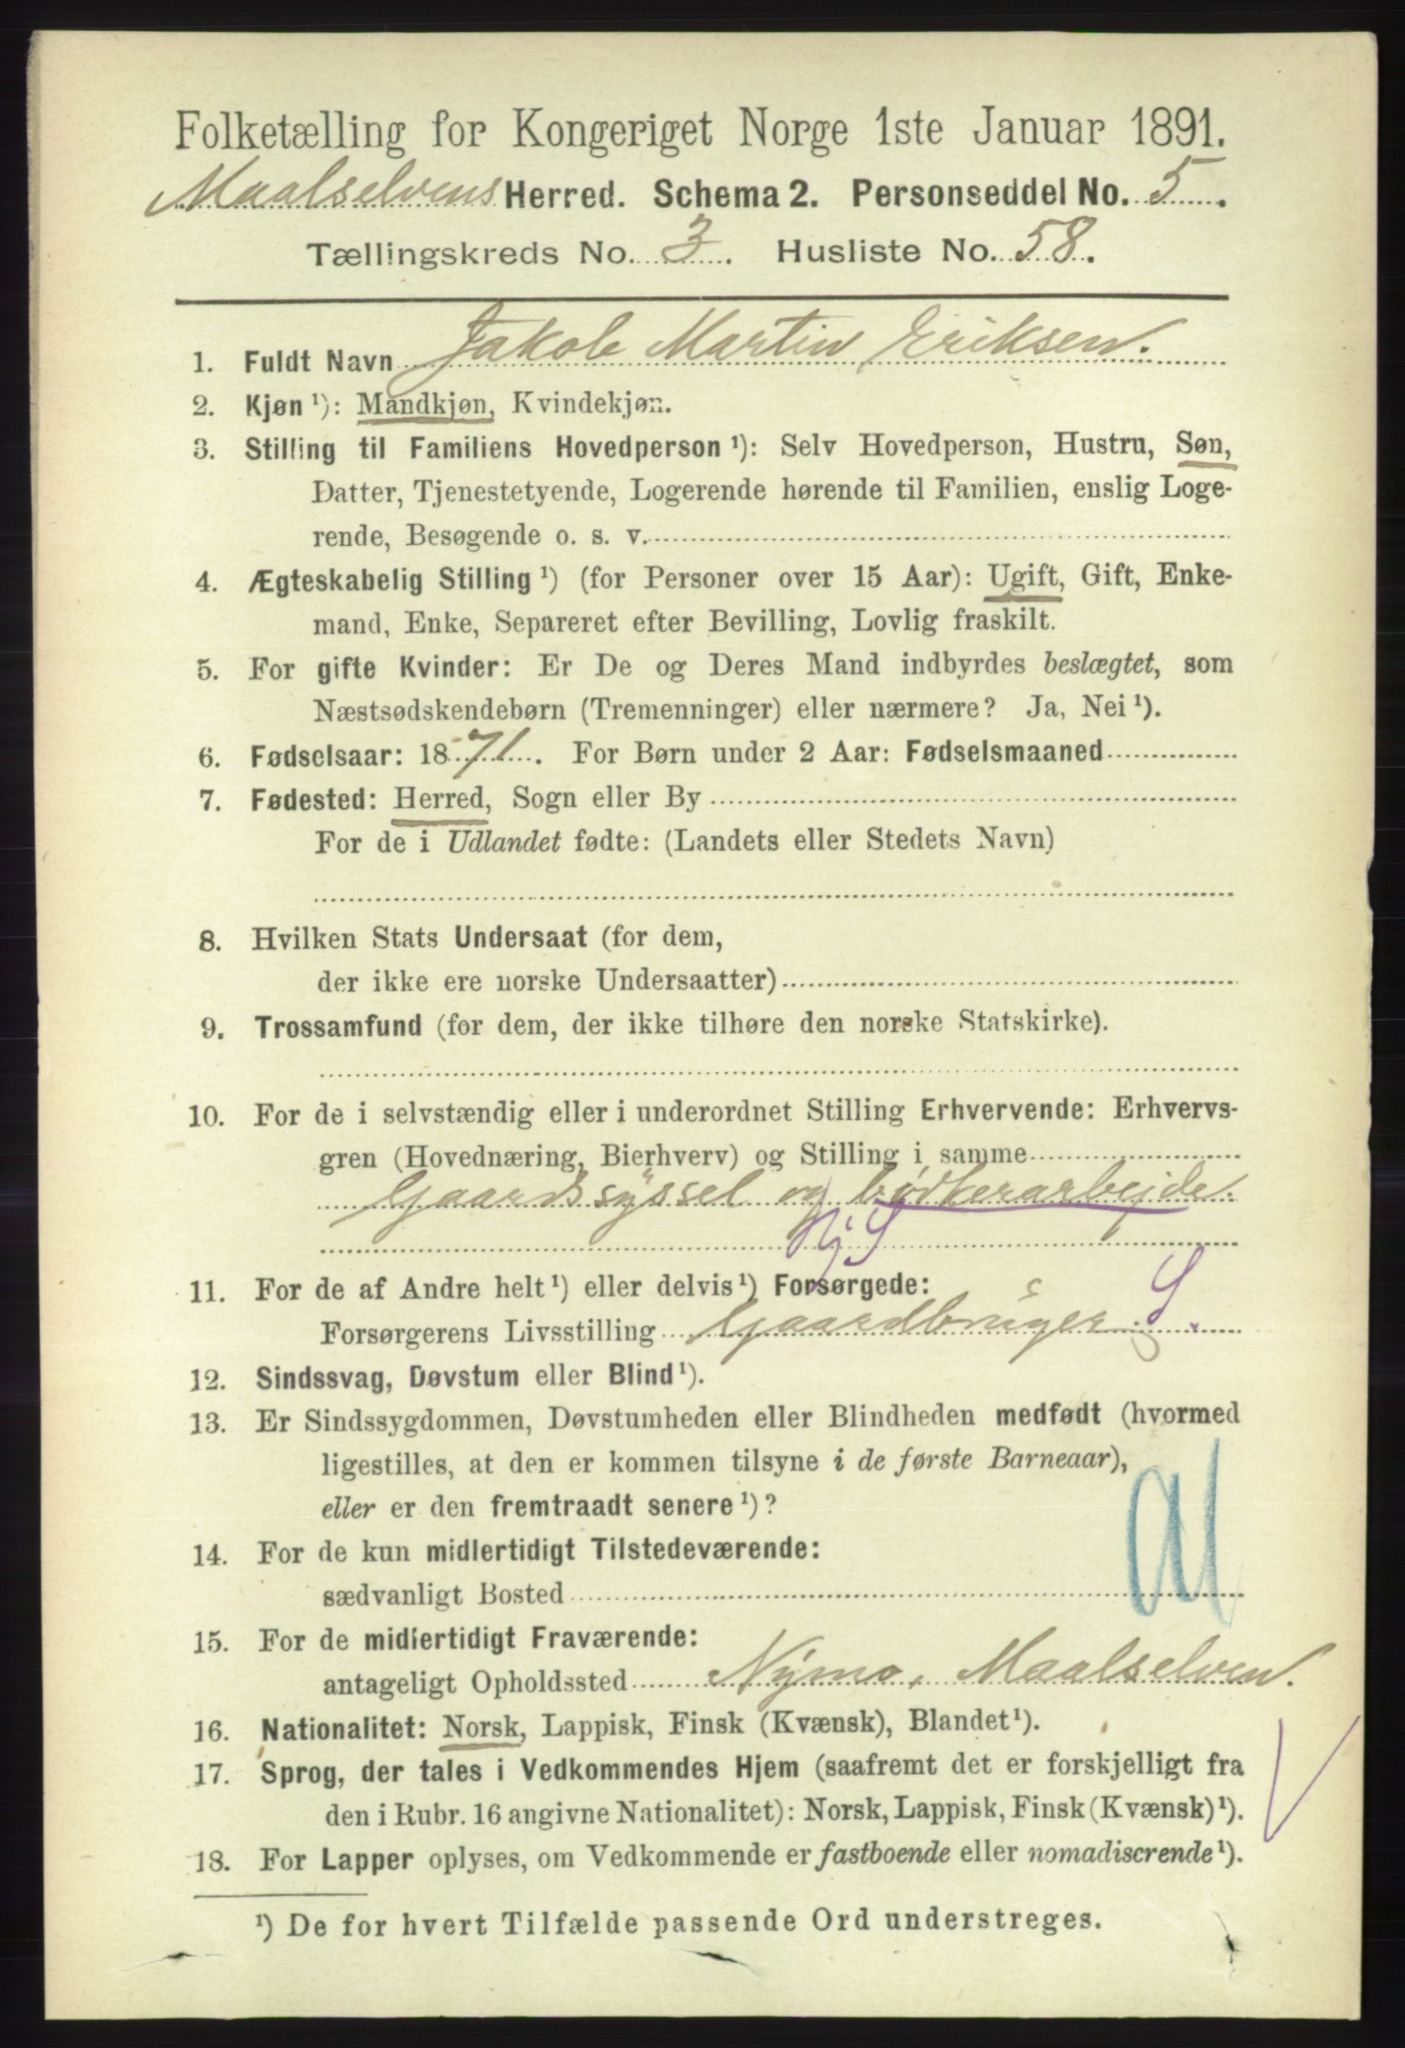 Folketælling for Kongeriget Norge 1ste Januar 1891.
Maalselvens Herred. Schema 2. Personseddel No. 5.
Tællingskreds No. 3. Husliste No. 58.
1. Fuldt Navn Jakob Martin Eriksen.
2. Kjøn ¹): Mandkjøn, Kvindekjøn.
3. Stilling til Familiens Hovedperson ¹): Selv Hovedperson, Hustru, Søn,
Datter, Tjenestetyende, Logerende hørende til Familien, enslig Loge-
rende, Besøgende o. s. v.
4. Ægteskabelig Stilling ¹) (for Personer over 15 Aar): Ugift, Gift, Enke-
mand, Enke, Separeret efter Bevilling, Lovlig fraskilt.
5. For gifte Kvinder: Er De og Deres Mand indbyrdes beslægtet, som
Næstsødskendebørn (Tremenninger) eller nærmere? Ja, Nei ¹).
6. Fødselsaar: 1871. For Børn under 2 Aar: Fødselsmaaned
7. Fødested: Herred, Sogn eller By
For de i Udlandet fødte: (Landets eller Stedets Navn)
8. Hvilken Stats Undersaat (for dem,
der ikke ere norske Undersaatter)
9. Trossamfund (for dem, der ikke tilhøre den norske Statskirke).
10. For de i selvstændig eller i underordnet Stilling Erhvervende: Erhvervs-
gren (Hovednæring, Bierhverv) og Stilling i samme
Gaardssyssel og bødkerarbejde.
11. For de af Andre helt ¹) eller delvis ¹) Forsørgede:
Forsørgerens Livsstilling Gaardbruger S.
12. Sindssvag, Døvstum eller Blind ¹).
13. Er Sindssygdommen, Døvstumheden eller Blindheden medfødt (hvormed
ligestilles, at den er kommen tilsyne i de første Barneaar),
eller er den fremtraadt senere ¹)?
14. For de kun midlertidigt Tilstedeværende:
sædvanligt Bosted
15. For de midlertidigt Fraværende:
antageligt Opholdssted Nymo, Maalselven.
16. Nationalitet: Norsk, Lappisk, Finsk (Kvænsk), Blandet ¹).
17. Sprog, der tales i Vedkommendes Hjem (saafremt det er forskjelligt fra
den i Rubr. 16 angivne Nationalitet): Norsk, Lappisk, Finsk (Kvænsk) ¹).
18. For Lapper oplyses, om Vedkommende er fastboende eller nomadiserende ¹).
¹) De for hvert Tilfælde passende Ord understreges.